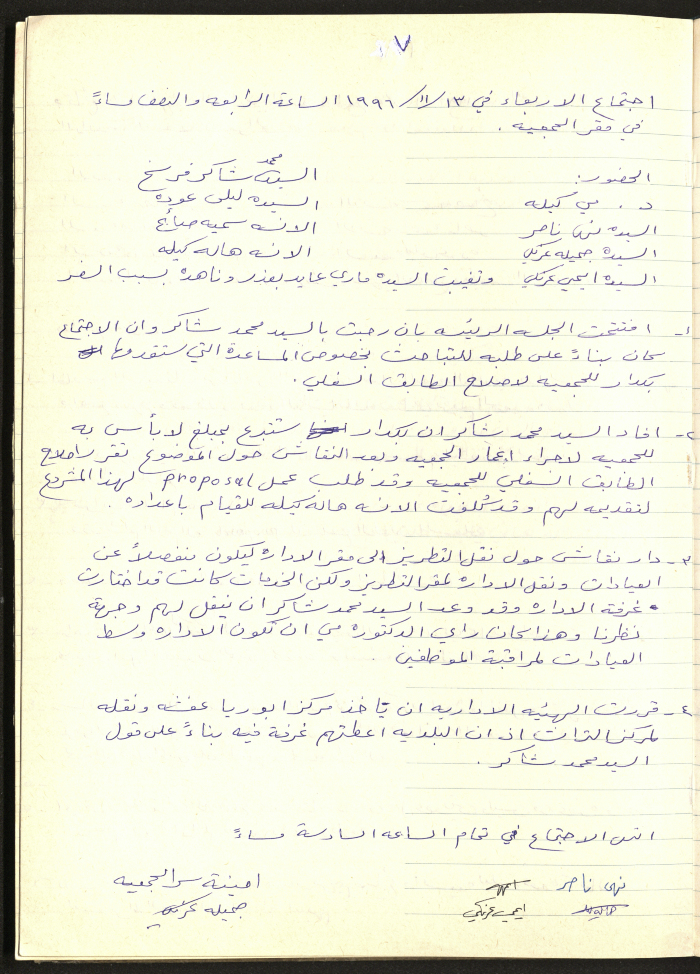 ٧
اجتماع الاربعاء في ١٣/١١/١٩٩٦ الساعة الرابعه والنصف مساءً
في مقر الجمعيه .
الحضور: السيد محمد شاكر فرسخ
د. مي كيله السيده ليلى عوده
السيده نهى ناصر الانسه سميه صايغ
السيدة جميله عرنكي الانسه هاله كيله
السيدة ايمي عرنكي وتغيبت السيده ماري عابد بعذر وناهدة بسبب السفر
١- افتتحت الجلسه الرئيسه بان رحبت بالسيد محمد شاكر وان الاجتماع
كان بناءً على طلبه للتباحث بخصوص المساعدة التي ستقدمها
بكدار للجمعيه لاصلاح الطابق السفلي .
٢- افاد السيد محمد شاكر ان بكدار ستتبرع بمبلغ لا بأس به
للجمعيه لاجراء اعمار الجمعيه وبعد النقاش حول الموضوع تقرر اصلاح
الطابق السفلي للجمعيه وقد طلب عمل proposal لهذا المشروع
لتقديمه لهم وقد كلفت الانسه هاله كيله للقيام باعداده .
٣- دار نقاش حول نقل التطريز الى مقر الاداره ليكون منفصلاً عن
العيادات ونقل الاداره لمقر التطريز ولكن الخدمات كانت قد اختارت
غرفة الاداره وقد وعد السيد محمد شاكر ان ينقل لهم وجهة
نظرنا وهذا كان راي الدكتوره مي ان تكون الاداره وسط
العيادات لمراقبة الموظفين .
٤- قررت الهيئه الاداريه ان ياخذ مركز ابو ريا عفشه ونقله
لمركز التراث اذ ان البلديه اعطتهم غرفة فيه بناءً على قول
السيد محمد شاكر .
انتهى الاجتماع في تمام الساعه السادسة مساءً
نهى ناصر امينة سر الجمعيه
ايمي عرنكي جميله عرنكي